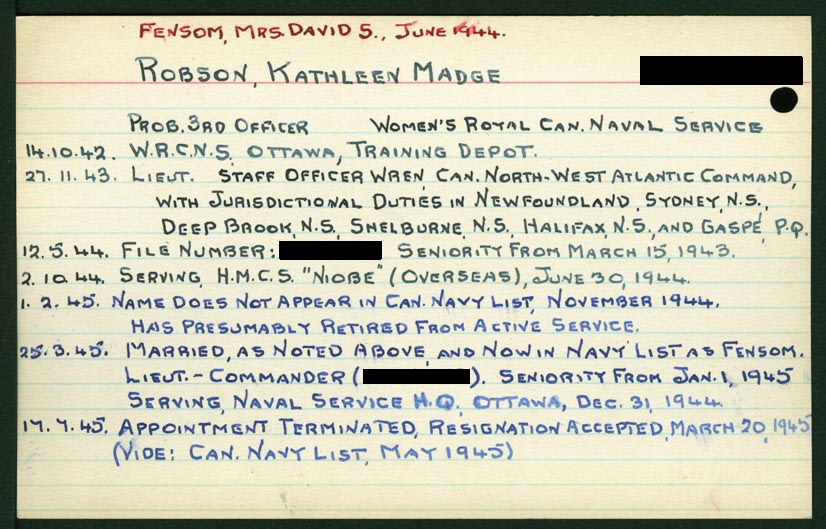 FENSOM, MRS. DAVID S., JUNE 1944.
ROBSON, KATHLEEN MADGE
PROB. 3RD OFFICER WOMEN'S ROYAL CAN. NAVAL SERVICE
14.10.42. W.R.C.N.S. OTTAWA, TRAINING DEPOT.
27.11.43. LIEUT. STAFF OFFICER WREN, CAN. NORTH-WEST ATLANTIC COMMAND,
WITH JURISDICTIONAL DUTIES IN NEWFOUNDLAND, SYDNEY, N.S.,
DEEP BROOK, N.S., SHELBURNE, N.S., HALIFAX, N.S., AND GASPÉ, P.Q.
12.5.44. FILE NUMBER: SENIORITY FROM MARCH 15, 1943.
2.10.44. SERVING, H.M.C.S. "NIOBE" (OVERSEAS), JUNE 30, 1944.
1. 2.45. NAME DOES NOT APPEAR IN CAN. NAVY LIST, NOVEMBER 1944.
HAS PRESUMABLY RETIRED FROM ACTIVE SERVICE.
25.3.45. MARRIED, AS NOTED ABOVE, AND NOW IN NAVY LIST AS FENSOM.
LIEUT.-COMMANDER ( ). SENIORITY FROM JAN. 1, 1945
SERVING, NAVAL SERVICE H.Q., OTTAWA, DEC. 31, 1944.
17.7.45. APPOINTMENT TERMINATED, RESIGNATION ACCEPTED, MARCH 20, 1945
(VIDE: CAN. NAVY LIST, MAY 1945)